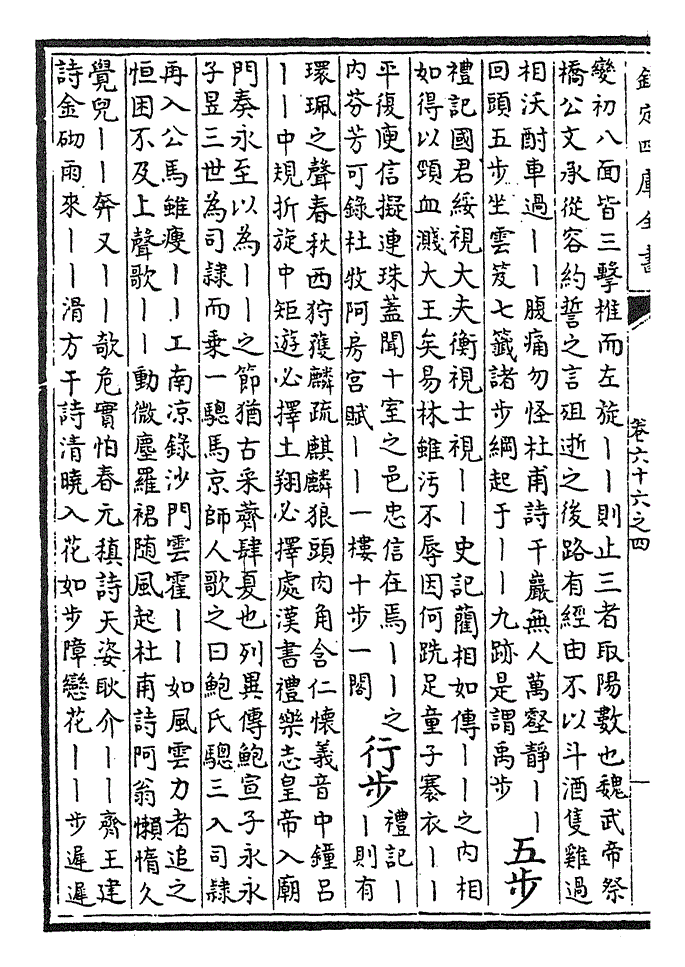 欽定四庫全書
卷六十六之四
一
變初八面皆三擊椎而左旋丨丨則止三者取陽數也魏武帝祭
橋公文承從容約誓之言殂逝之後路有經由不以斗酒隻雞過
相沃酹車過丨丨腹痛勿怪杜甫詩千巖無人萬壑靜丨丨
回頭五步坐雲笈七籤諸步綱起于丨丨九跡是謂禹步
五步
禮記國君綏視大夫衡視士視丨丨史記藺相如傳丨丨之内相
如得以頸血濺大王矣易林雖污不辱因何跣足童子褰衣丨丨
平復庾信擬連珠蓋聞十室之邑忠信在焉丨丨之
内芬芳可錄杜牧阿房宮賦丨丨一樓十步一閣
行步
禮記丨
丨則有
環珮之聲春秋西狩獲麟疏麒麟狼頭肉角含仁懷義音中鐘呂
丨丨中規折旋中矩遊必擇土翔必擇處漢書禮樂志皇帝入廟
門奏永至以為丨丨之節猶古采薺肆夏也列異傳鮑宣子永永
子昱三世為司隸而乗一驄馬京師人歌之曰鮑氏驄三入司隸
再入公馬雖瘦丨丨工南凉錄沙門雲霍丨丨如風雲力者追之
恒困不及上聲歌丨丨動微塵羅裙随風起杜甫詩阿翁懶惰久
覺兒丨丨奔又丨丨欹危實怕春元稹詩天姿耿介丨丨齊王建
詩金砌雨來丨丨滑方干詩清曉入花如步障戀花丨丨步遲遲